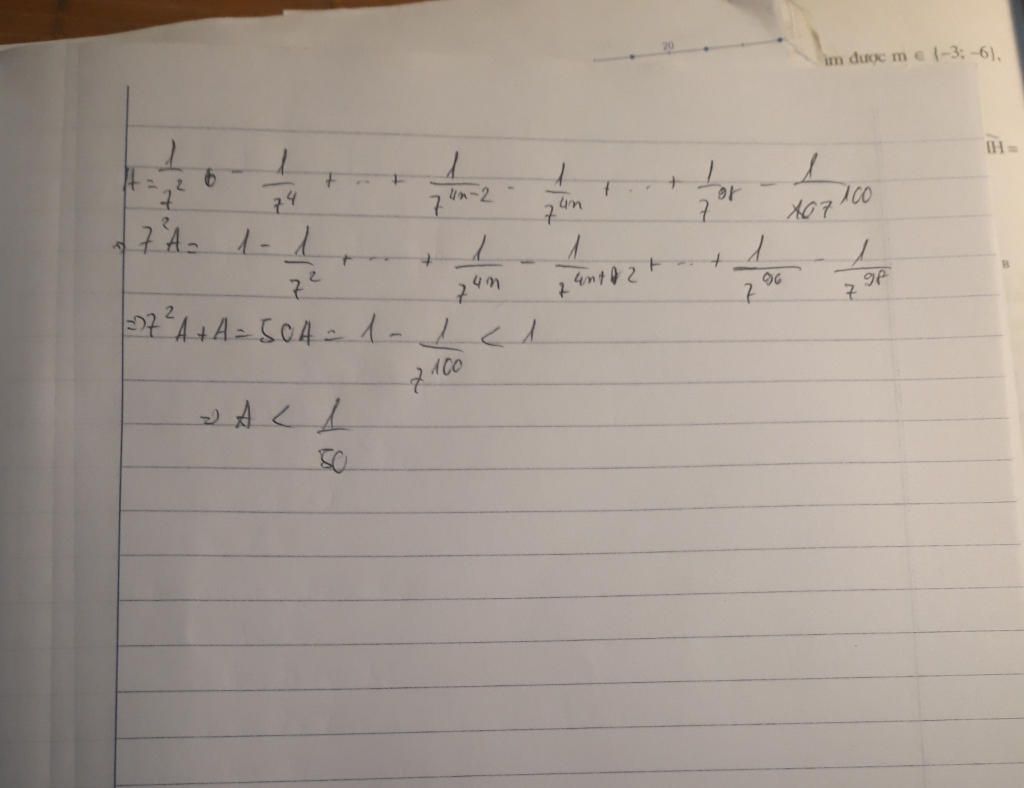 20
ìm được m ∈ {–3; –6},
IH =
A = 1/7^2 - 1/7^4 + ... + 1/7^(4n-2) - 1/7^(4n) + ... + 1/7^98 - 1/7^100
⇒ 7^2A = 1 - 1/7^2 + ... + 1/7^(4n) - 1/7^(4n+2) + ... + 1/7^96 - 1/7^98
⇒ 7^2A + A = 50A = 1 - 1/7^100 < 1
⇒ A < 1/50